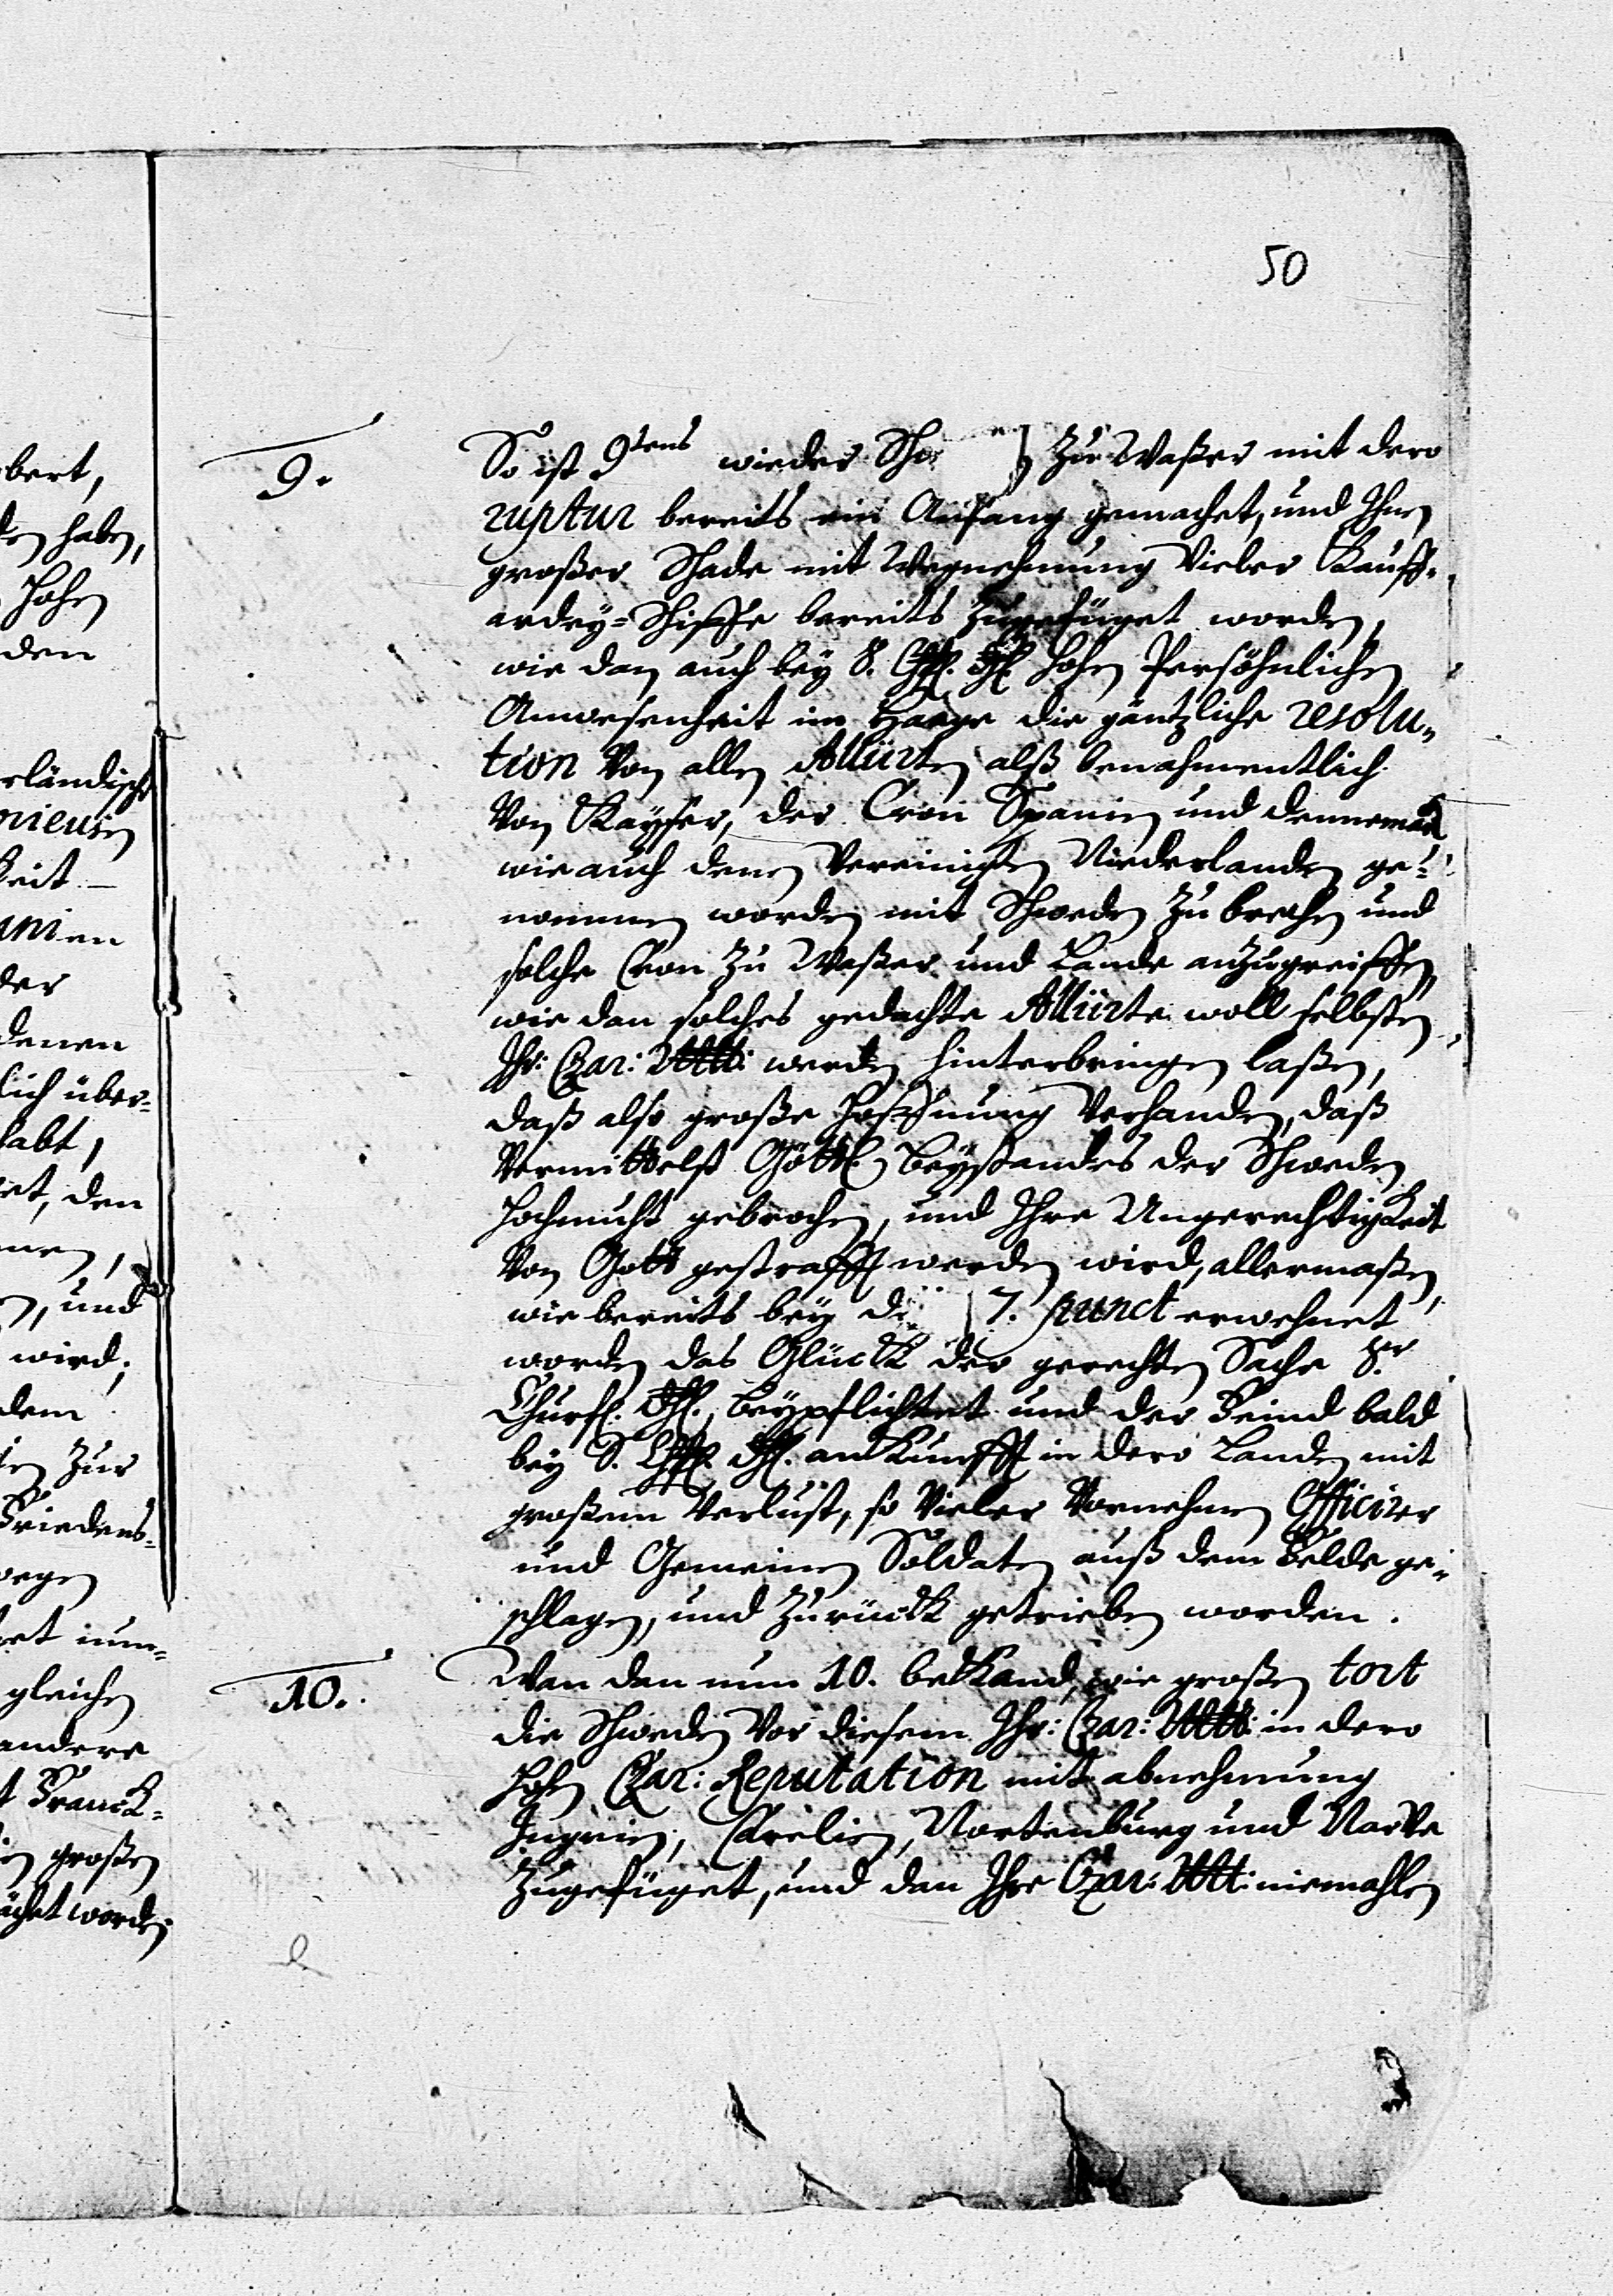 50
9.
So ist 9tens wieder Sch zu Waßer mit dero
ruptur bereits ein Anfang gemachet, und Ihnen
großer Schade mit Wegnehmung Vieler Kauff-
ardey-Schiffe bereits zugefüget worden,
wie dan auch bey S. Chfl. Dhl. hohen Persöhnlichen
Anwesenheit im Haage die gäntzliche resolu-
tion Von allen Alliirten alß benahmentlich
Von Kayser, der Cron Spanien und Dennemarck
wie auch denen Vereinigten Niederlanden ge-
nommen worden mit Schweden zu brechen und
solche Cron zu Waßer und Lande anzugreiffen,
wie dan solches gedachte Alliirte woll selbsten
Ihr: Czar: Mtt: werden hinterbringen laßen,
daß also große Hoffnung Verhanden, daß
Vermittelst Göttl. Beystandes der Schweden
Hochmuht gebrochen, und Ihre Ungerechtigkeit
Von Gott gestrafft werden wird, allermaßen,
wie bereits bey d 7. punct erwehnet
worden das Glück der gerechten Sache Sr.
Churfl. Dhl. beypflichtet und der Feind bald
bey S. Chfl. Dhl. ankunfft in dero Landen mit
großem Verlust, so Vieler Vornehmen Officirer
und Gemeinen Soldaten auß dem Felde ge-
schlagen, und zurück getrieben worden.
10.
Wan dan nun 10. bekand, wie großen tort
die Schweden Vor diesem Ihr: Czar: Mtt: in dero
hohen Czar: Reputation mit abnehmung
Ingrien, Carelien, Nortenburg und Narva
zugefüget, und dan Ihre Czar: Mtt: niemahlen
bert,
den haben,
hohen
den
rländische
keit
der
denen
lich über-
habt,
et, den
, und
wird;
dem
zur
Friedens-
wegen
gleichen
andere
Franck-
großen
worden;